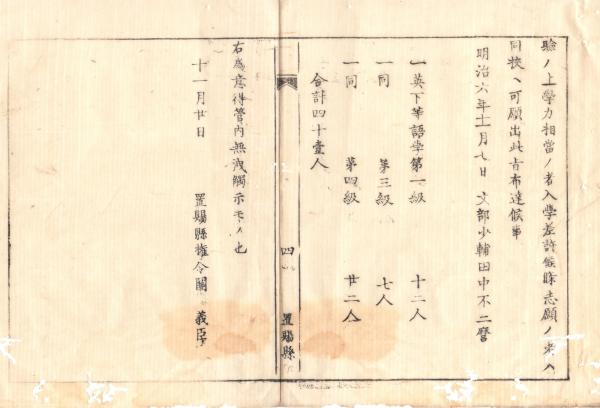 驗ノ上學力相當ノ者入學差許候條志願ノ者ハ
同校ヘ可願出此旨布達候事
明治六年十一月七日 文部少輔田中不二麿
一英下等語學第一級 十二人
一同 第三級 七人
一同 第四級 廿二人
合計四十壹人
四
置賜縣
右為意得管内無洩觸示モノ也
十一月廿日 置賜縣權令關 義臣